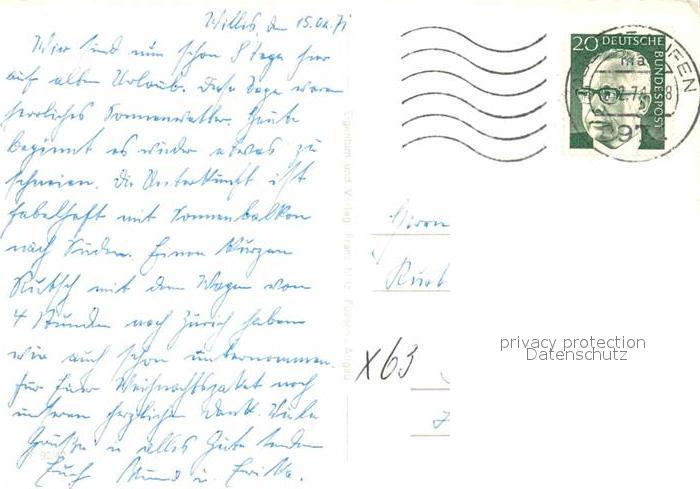 Willis, den 15.02.71
Wir sind nun schon 8 Tage hier
auf alten Urlaub. Diese Tage waren
herrliches Sonnenwetter. Heute
beginnt es wieder etwas zu
schneien. Die Unterkunft ist
fabelhaft mit Sonnenbalkon
nach Süden. Einen kurzen
Rutsch mit dem Wagen von
4 Stunden nach Zürich haben
wir auch schon unternommen.
Für Euer Weihnachtspaket noch
unseren herzlichen Dank. Viele
Grüße u alles Gute senden
Euch u.
20 DEUTSCHE
BUNDESPOST
Herrn
Kurt
x63
privacy protection
Datenschutz